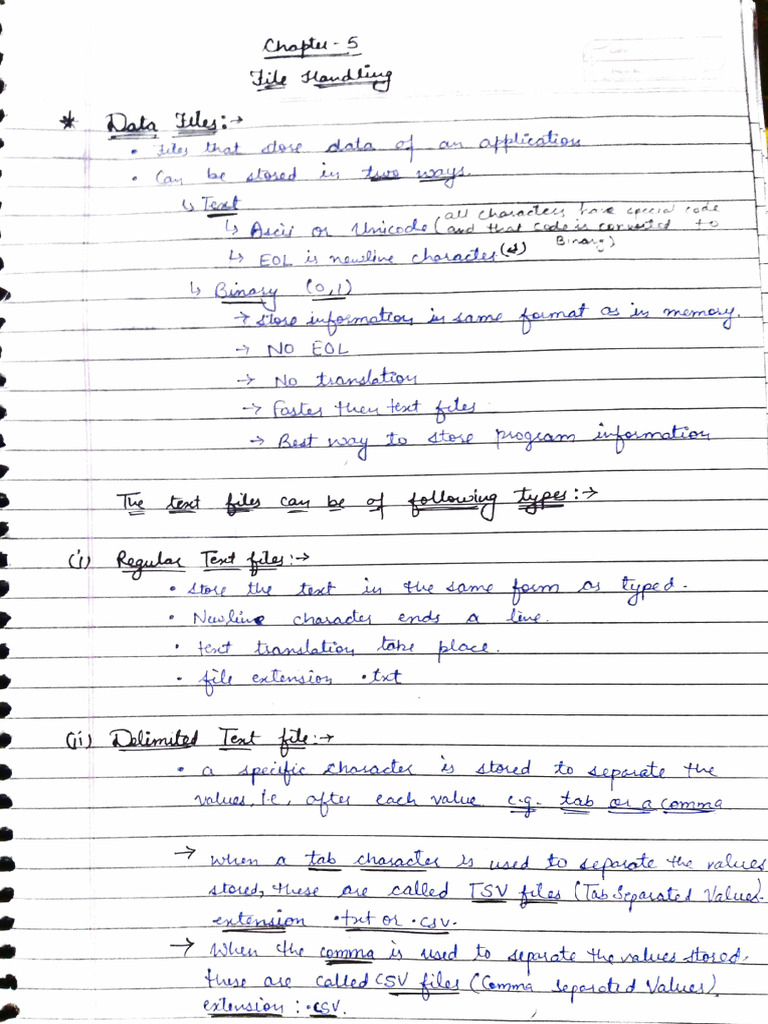 Chapter - 5
File Handling
* Data Files:→
• Files that store data of an application
• Can be stored in two ways.
↳ Text
↳ Ascii or Unicode (all characters have special code and that code is converted to Binary)
↳ EOL is newline character (↲)
↳ Binary (0,1)
→ Store information in same format as in memory.
→ NO EOL
→ No translation
→ Faster then text files
→ Best way to store program information
The text files can be of following types:→
(i) Regular Text files:→
• Store the text in the same form as typed.
• Newline character ends a line.
• text translation take place.
• file extension .txt
(ii) Delimited Text file:→
• a specific character is stored to separate the
values, i.e, after each value e.g. tab or a comma
→ when a tab character is used to separate the values
stored, these are called TSV files (Tab Separated Values.
extension .txt or .csv.
→ When the comma is used to separate the values stored,
these are called CSV files (Comma Separated Values)
extension : .csv.